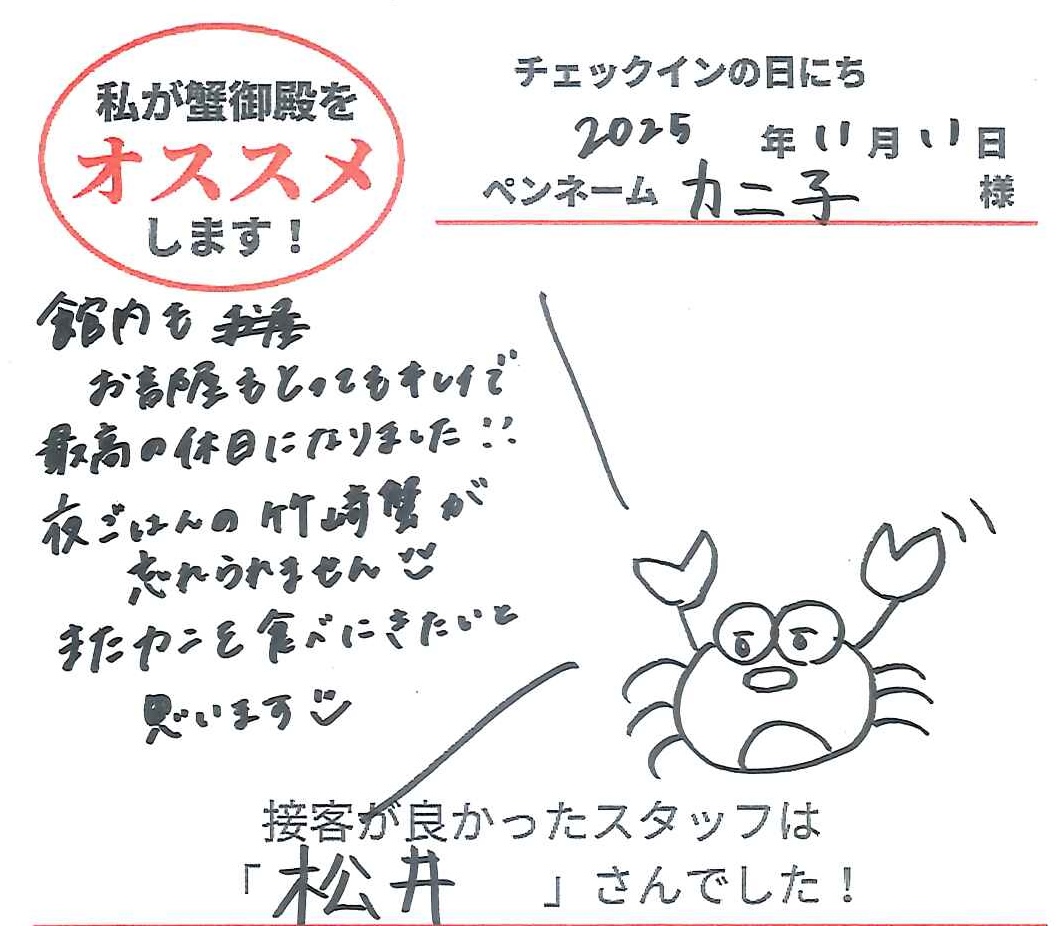 私が蟹御殿を
オススメ
します！
チェックインの日にち
2025 年 11 月 11 日
ペンネーム カニ子 様
館内も
お部屋もとってもキレイで
最高の休日になりました!!
夜ごはんの竹崎蟹が
忘れられません
またカニを食べにきたいと
思います
接客が良かったスタッフは
「松井」さんでした！